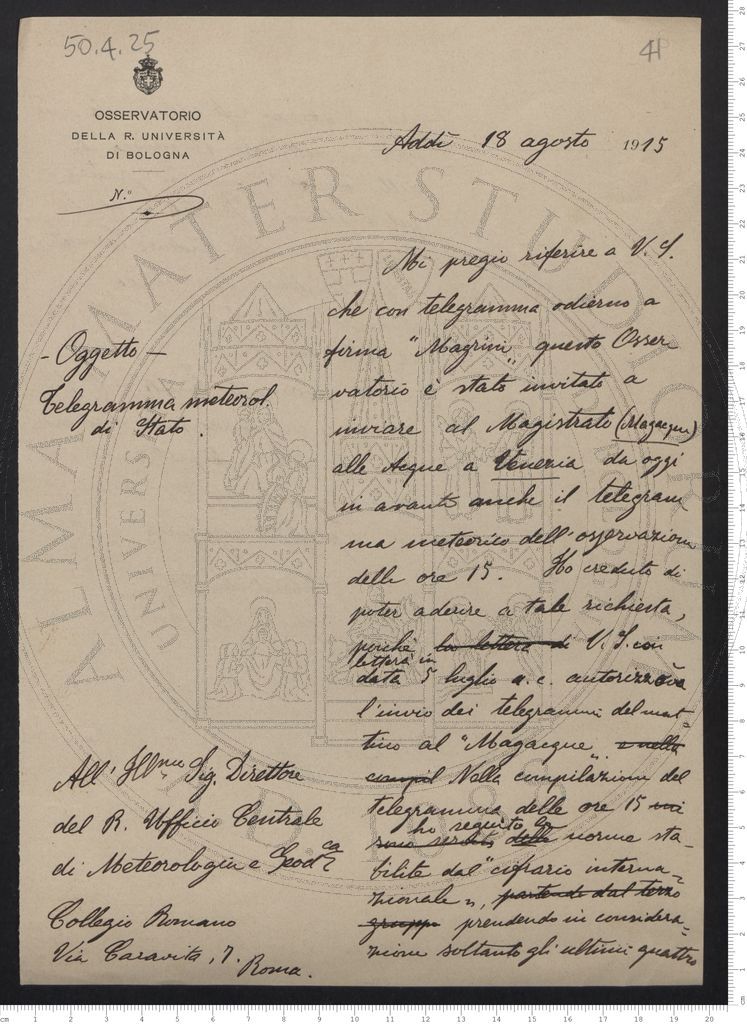 50.4.25
41
OSSERVATORIO
DELLA R. UNIVERSITÀ
DI BOLOGNA
N.°
Addì 18 agosto 1915
Mi pregio riferire a V. S.
che con telegramma odierno a
firma "Magrini" questo Osser
vatorio è stato invitato a
inviare al Magistrato (Magacque)
alle Acque a Venezia da oggi
in avanti anche il telegram
ma meteorico dell'osservazione
delle ore 15. Ho creduto di
poter aderire a tale richiesta,
perchè la lettera di V. S. con
lettera in
data 5 luglio a. c. autorizzava
l'invio dei telegrammi del mat-
tino al "Magacque". e nella
compil Nella compilazione del
telegramma delle ore 15 mi
ho seguito le
sono servito delle norme sta-
bilite dal "cifrario interna=
zionale", partendo dal terzo
gruppo prendendo in considera=
zione soltanto gli ultimi quattro
- Oggetto -
Telegramma meteorol.
di Stato.
All' Ill.mo Sig. Direttore
del R. Ufficio Centrale
di Meteorologia e Geod.ca
Collegio Romano
Via Caravita, 7. Roma.
ALMA MATER STUDIORUM
A.D. 1088